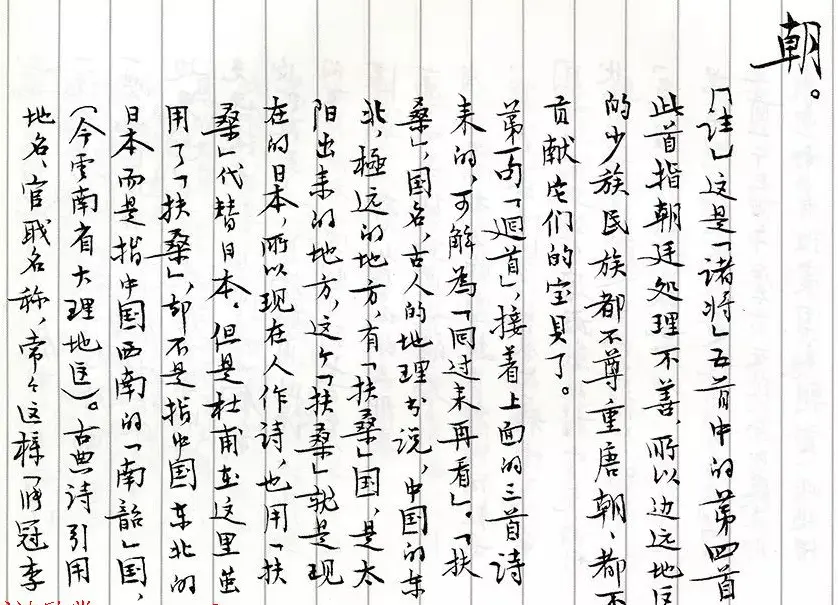 朝。
「注」这是「诸将」五首中的第四首
此首指朝廷处理不善，所以边远地区
的少族民族都不尊重唐朝、都不
贡献它们的宝贝了。
第一句「迴首」，接着上面的三首诗
来的，可解為「回过来再看」。「扶
桑」，国名，古人的地理书说，中国的东
北，極远的地方，有「扶桑」国，是太
阳出来的地方，这个「扶桑」就是现
在的日本，所以现在人作诗，也用「扶
桑」代替日本。但是杜甫在这里虽
用了「扶桑」，却不是指中国东北的
日本而是指中国西南的「南韶」国，
（今雲南省大理地区）。古典诗引用
地名、官职名称，常々这样「
冠李